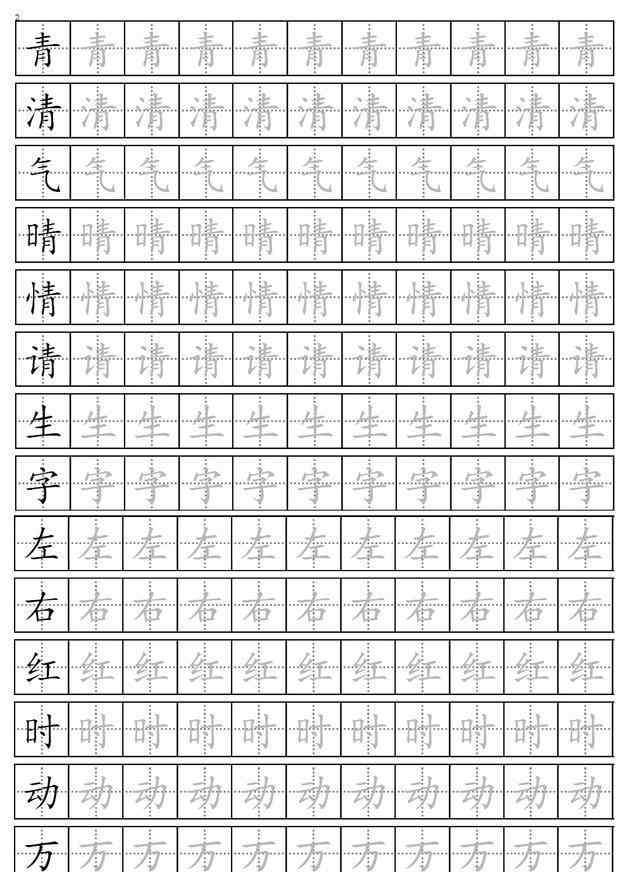 青青青青青青青青青青青
清清清清清清清清清清清
气气气气气气气气气气气
晴晴晴晴晴晴晴晴晴晴晴
情情情情情情情情情情情
请请请请请请请请请请请
生生生生生生生生生生生
字字字字字字字字字字字
左左左左左左左左左左左
右右右右右右右右右右右
红红红红红红红红红红红
时时时时时时时时时时时
动动动动动动动动动动动
万万万万万万万万万万万